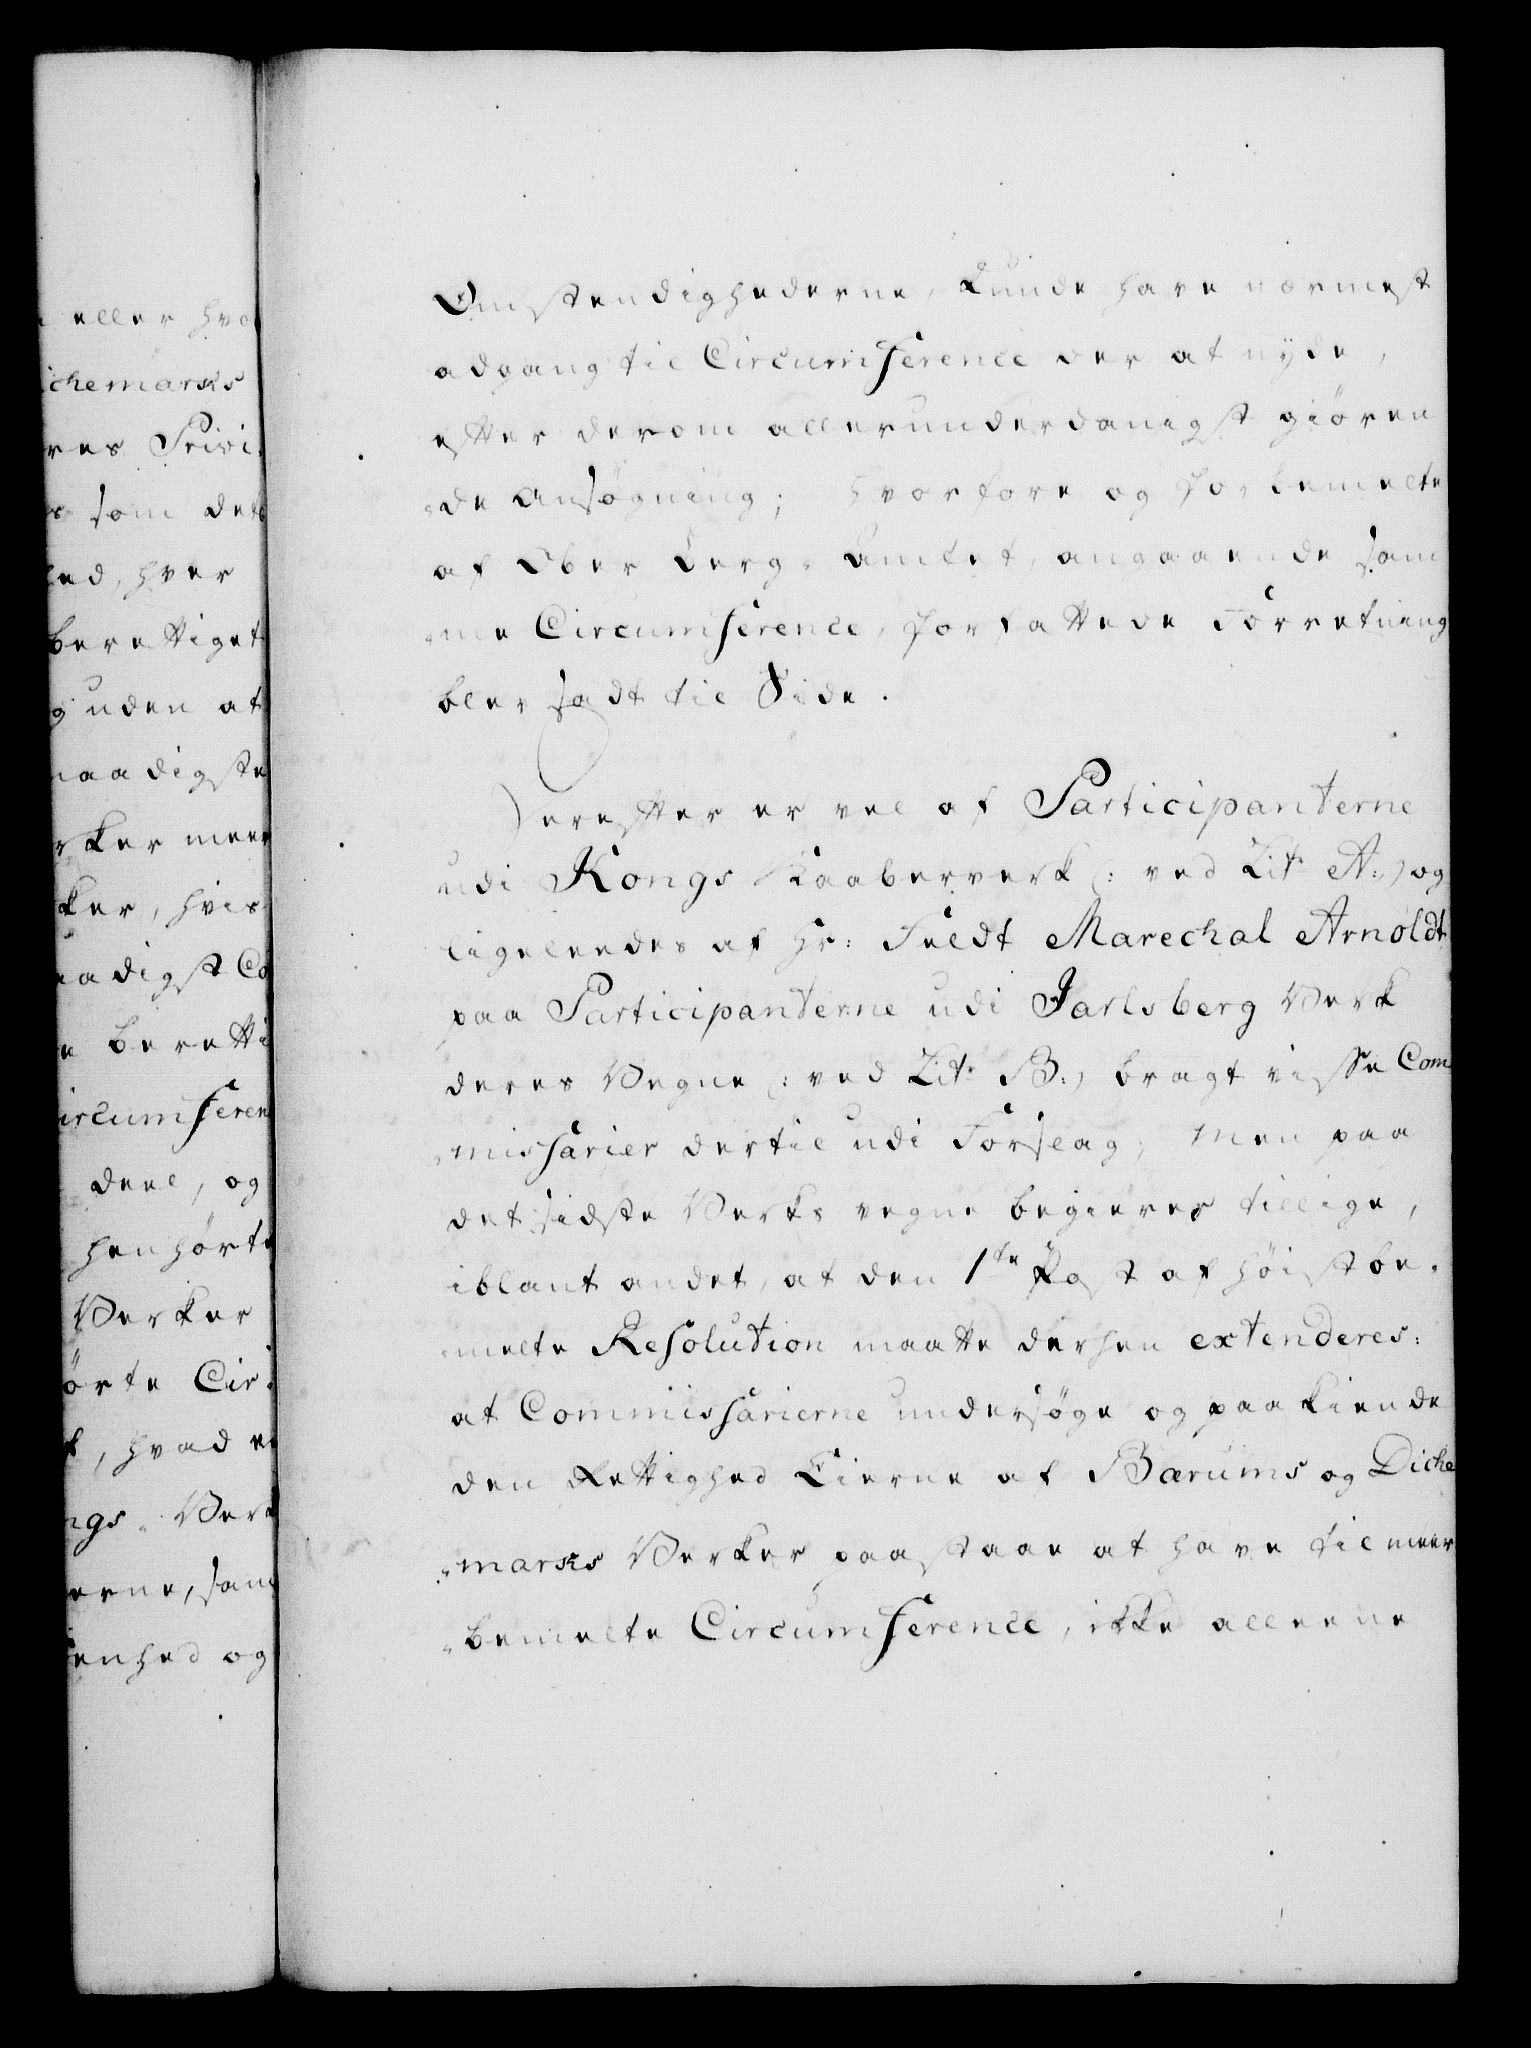 eller hva
ichemarks
res Privi-
som dets
hed, hver
berettiget
g uden at
naadigste
rker meer
ker, hvis
aadigst Co
e beretti
ircumferen
deel, og
henhörte
Verker
örte Cir-
, hvad
ngs- Verk
erne, sam
enhed og
Omstendighederne, kunde have nærmest
adgang til Circumference der at nyde,
efter derom allerunderdanigst giören
-de Ansögning; hvorfore og forbemelte
af Ober Berg-Amtet, angaaende sam
-me Circumference, forfattede Forretning
blev sadt til Side.
Derefter er vel af Participanterne
udi Kongs Kaaberverk (: ved Lit: A:) og
ligeleedes af Hr: Feldt Marechal Arnoldt
paa Participanterne udi Jarlsberg Verk
deres Vegne (: ved Lit: B:) bragt visse Com
-missarier dertil udi Forslag; Men paa
det sidste Verks vegne begieres tillige,
iblant andet, at den 1te Post af höistbe-
-melte Resolution maatte derhen extenderes:
at Commissarierne undersöge og paakiende
den Rettighed Eierne af Bærums og Diche
-marks Verker paastaae at have til meer
-bemelte Circumference, ikke alleene